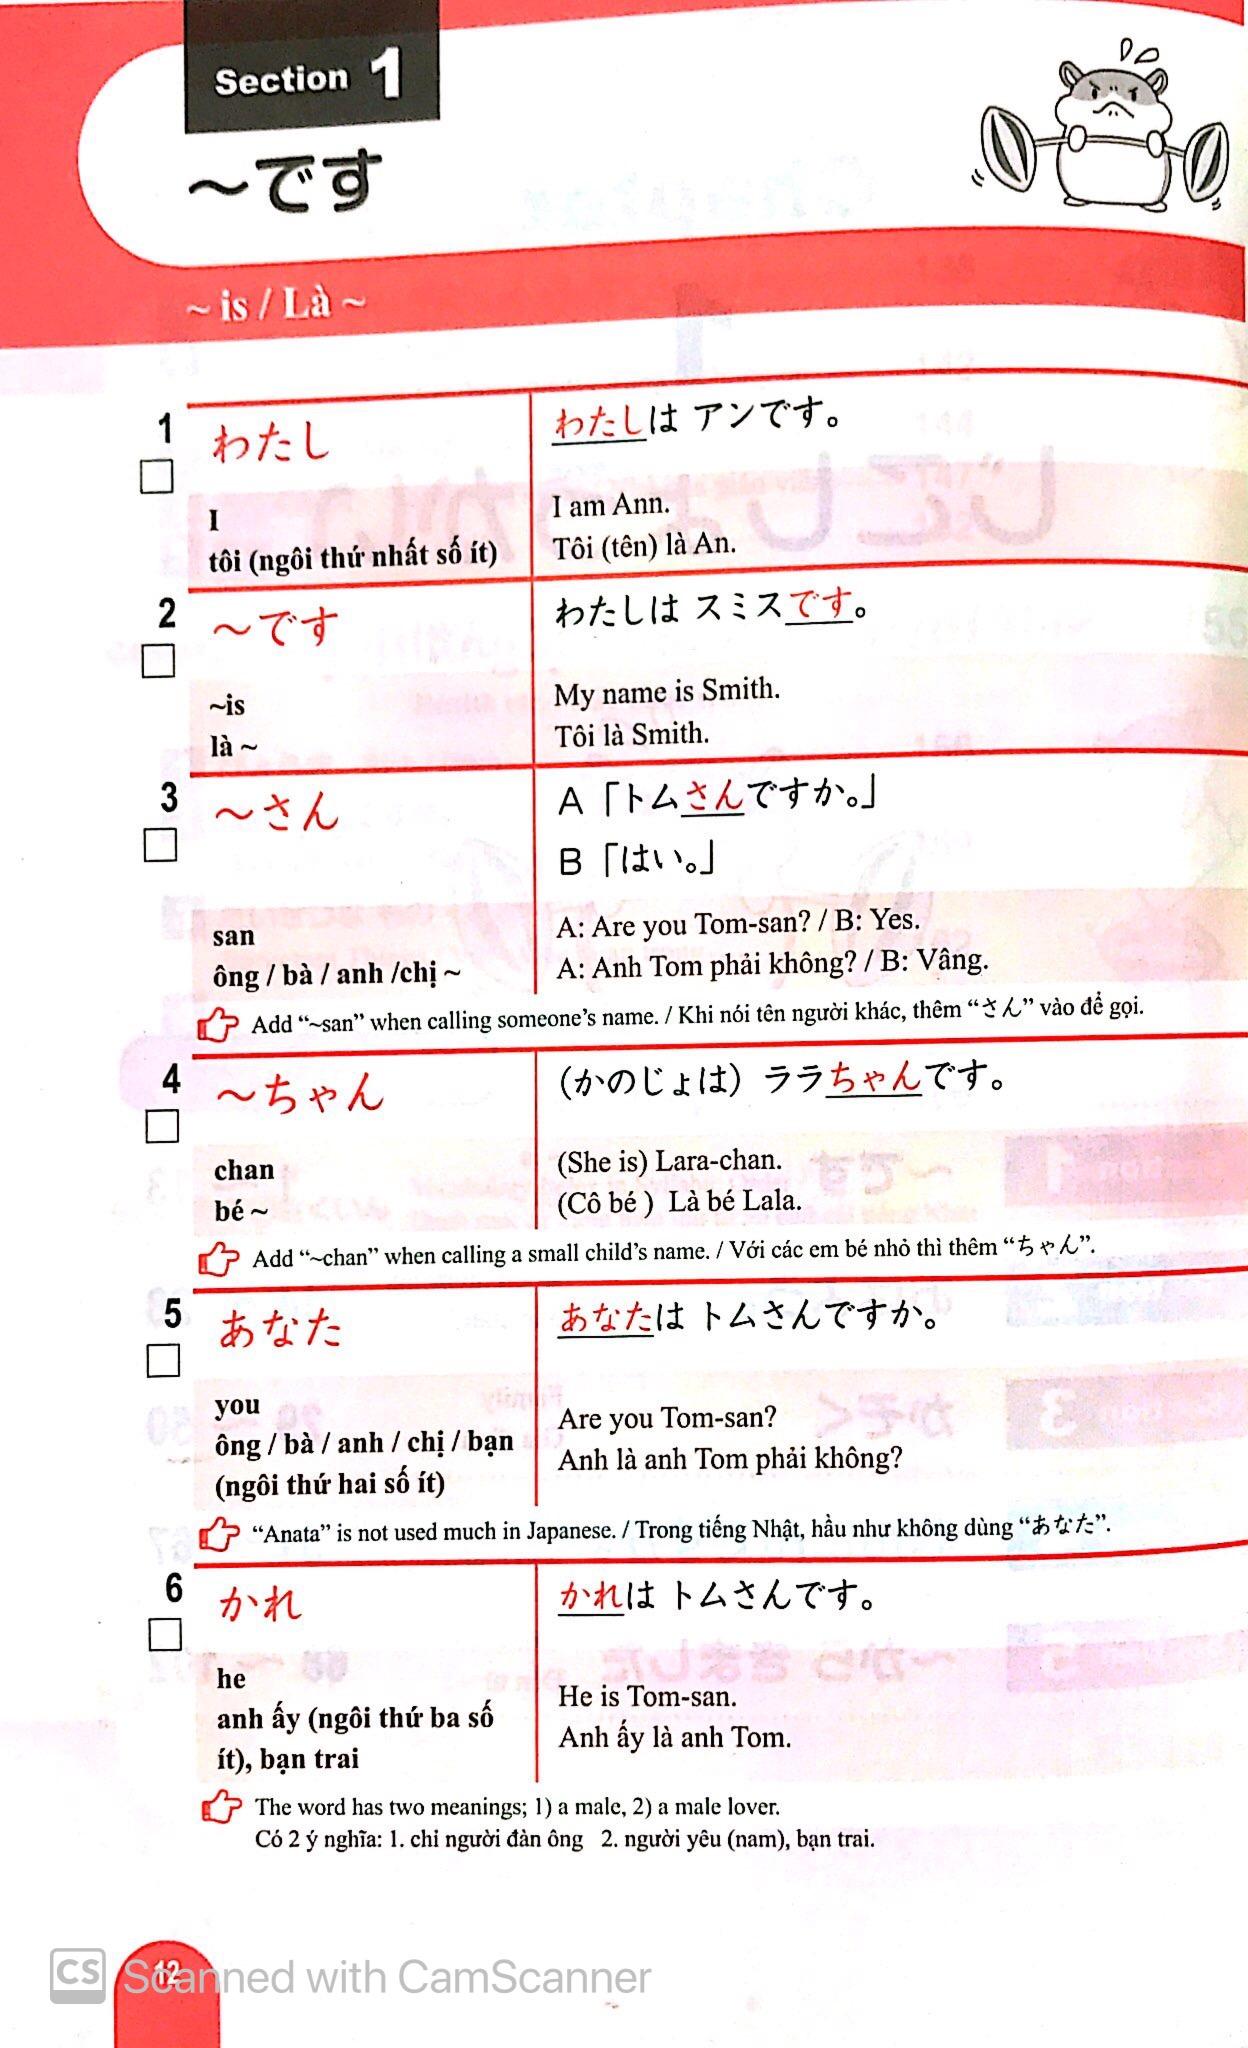 Section 1
～です
~ is / Là ~
1
わたし
わたしは アンです。
I
tôi (ngôi thứ nhất số ít)
I am Ann.
Tôi (tên) là An.
2
～です
わたしは スミスです。
~is
là ~
My name is Smith.
Tôi là Smith.
3
～さん
A「トムさんですか。」
B「はい。」
san
ông / bà / anh /chị ~
A: Are you Tom-san? / B: Yes.
A: Anh Tom phải không? / B: Vâng.
Add “~san” when calling someone’s name. / Khi nói tên người khác, thêm “さん” vào để gọi.
4
～ちゃん
（かのじょは）ララちゃんです。
chan
bé ~
(She is) Lara-chan.
(Cô bé ) Là bé Lala.
Add “~chan” when calling a small child’s name. / Với các em bé nhỏ thì thêm “ちゃん”.
5
あなた
あなたは トムさんですか。
you
ông / bà / anh / chị / bạn
(ngôi thứ hai số ít)
Are you Tom-san?
Anh là anh Tom phải không?
“Anata” is not used much in Japanese. / Trong tiếng Nhật, hầu như không dùng “あなた”.
6
かれ
かれは トムさんです。
he
anh ấy (ngôi thứ ba số
ít), bạn trai
He is Tom-san.
Anh ấy là anh Tom.
The word has two meanings; 1) a male, 2) a male lover.
Có 2 ý nghĩa: 1. chỉ người đàn ông 2. người yêu (nam), bạn trai.
12
CS Scanned with CamScanner